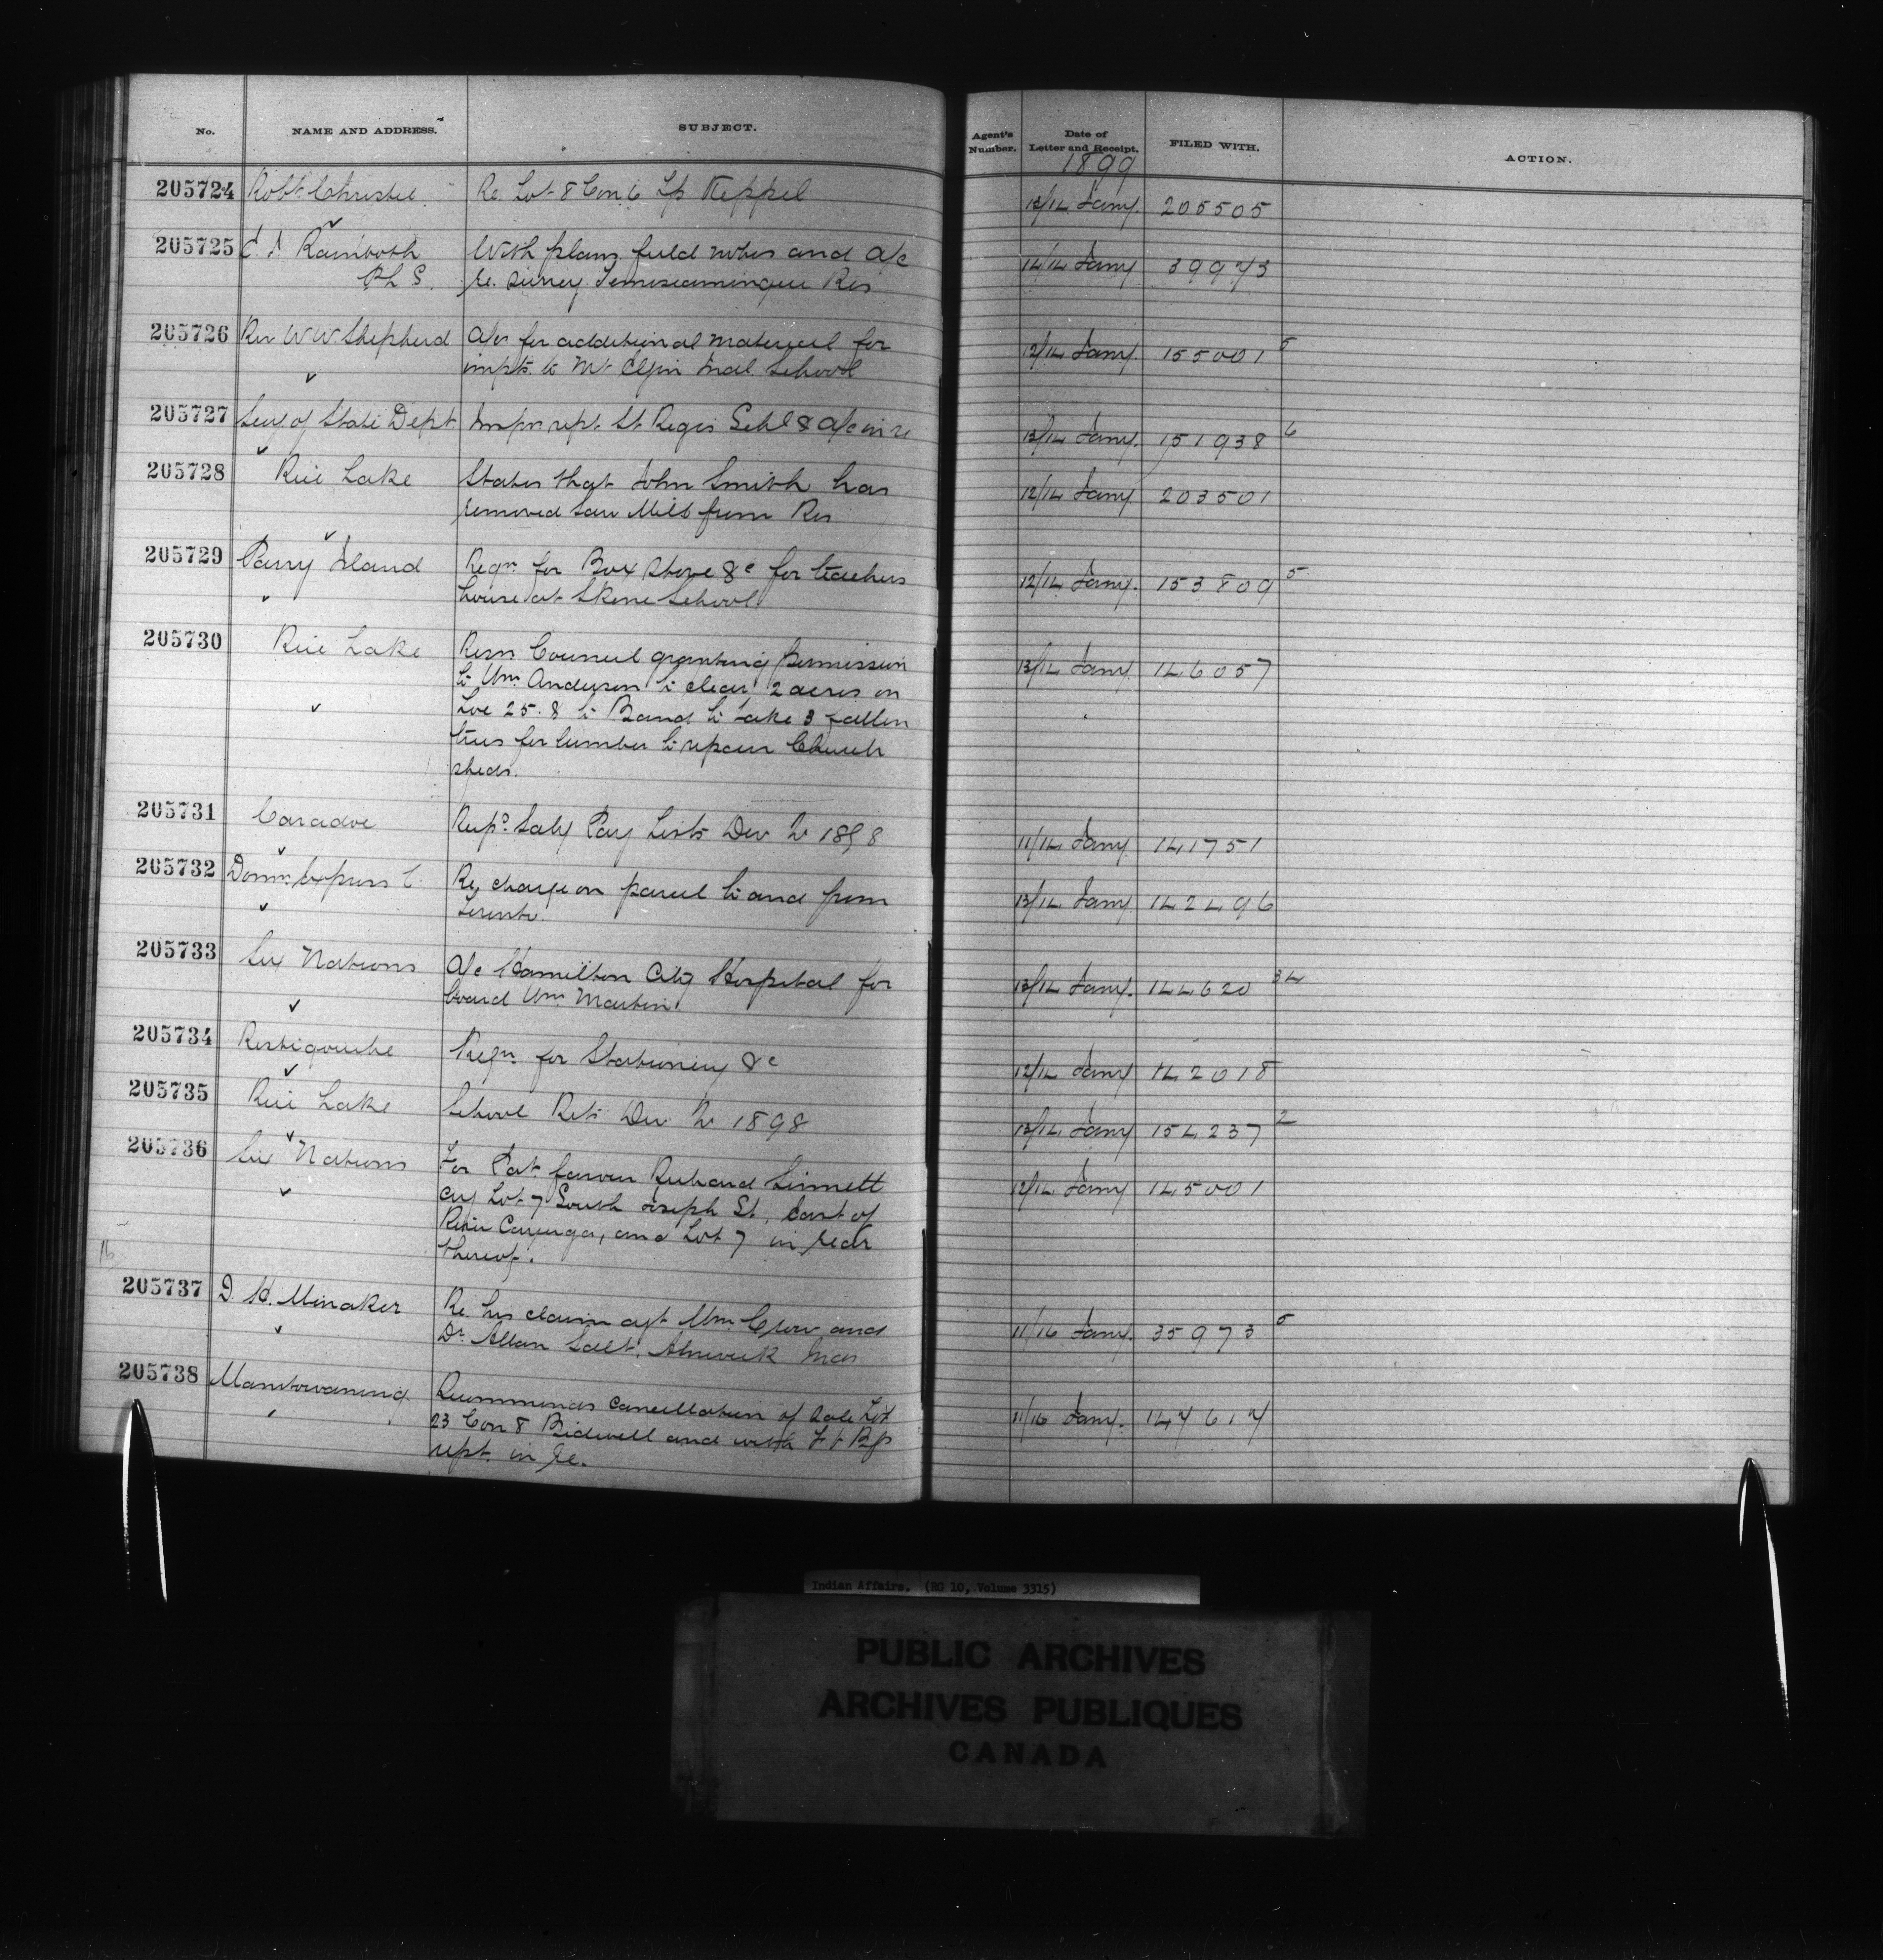 No. NAME AND ADDRESS. SUBJECT. Agent's Number. Date of Letter and Receipt. FILED WITH. ACTION.
1899
205724 Robt. Christie Re. Lot 8 Con 6 Tp Keppel 12/14 Jany. 205505
205725 Rainboth With plans field notes and a/c 14/14 Jany 39973
P L S. re. survey Temiscamingue Res
205726 Rev W W Shepherd a/cs for additional material for 12/14 Jany. 155001 5
impts. to Mt Elgin Indl. School
205727 Secy of State Dept Inspn rept. St Regis Schl & a/c in re 13/14 Jany. 151938 6
205728 Rice Lake States that John Smith has 12/14 Jany. 203501
removed Saw Mill from Res
205729 Parry Island Reqn. for Box Stove &c for teachers 12/14 Jany. 153809 5
house at Skene School
205730 Rice Lake Resn. Council granting permission 13/14 Jany. 146057
to Wm. Anderson to clear 2 acres on
Loc 25. & to Band to take 3 fallen
trees for lumber to repair Church
sheds.
205731 Caradoc Recpd Saly Pay Lists Dec Qr 1898 11/14 Jany. 141751
205732 Domn. Express C. Re, charge on parcel to and from 13/14 Jany. 142496
Toronto.
205733 Six Nations A/c Hamilton City Hospital for 13/14 Jany. 144620 34
board Wm Martin.
205734 Restigouche Reqn. for Stationery &c 12/14 Jany 142018
205735 Rice Lake School Rets Dec Qr 1898 13/14 Jany. 154237 2
205736 Six Nations For Pat favour Richard Sinnett 12/14 Jany 145001
cvg Lot 7 South Joseph St, East of
River Cayuga, and Lot 7 in rear
thereof.
16
205737 D. H. Minaker Re. his claim agt. Wm. Crow and 11/16 Jany. 35973 5
Dr. Allan Salt, Alnwick Inds
205738 Manitowaning Recommends cancellation of sale Lot 11/16 Jany. 147617
23 Con 8 Bidwell and with
rept. in re.
Indian Affairs. (RG 10, Volume 3315)
PUBLIC ARCHIVES
ARCHIVES PUBLIQUES
CANADA